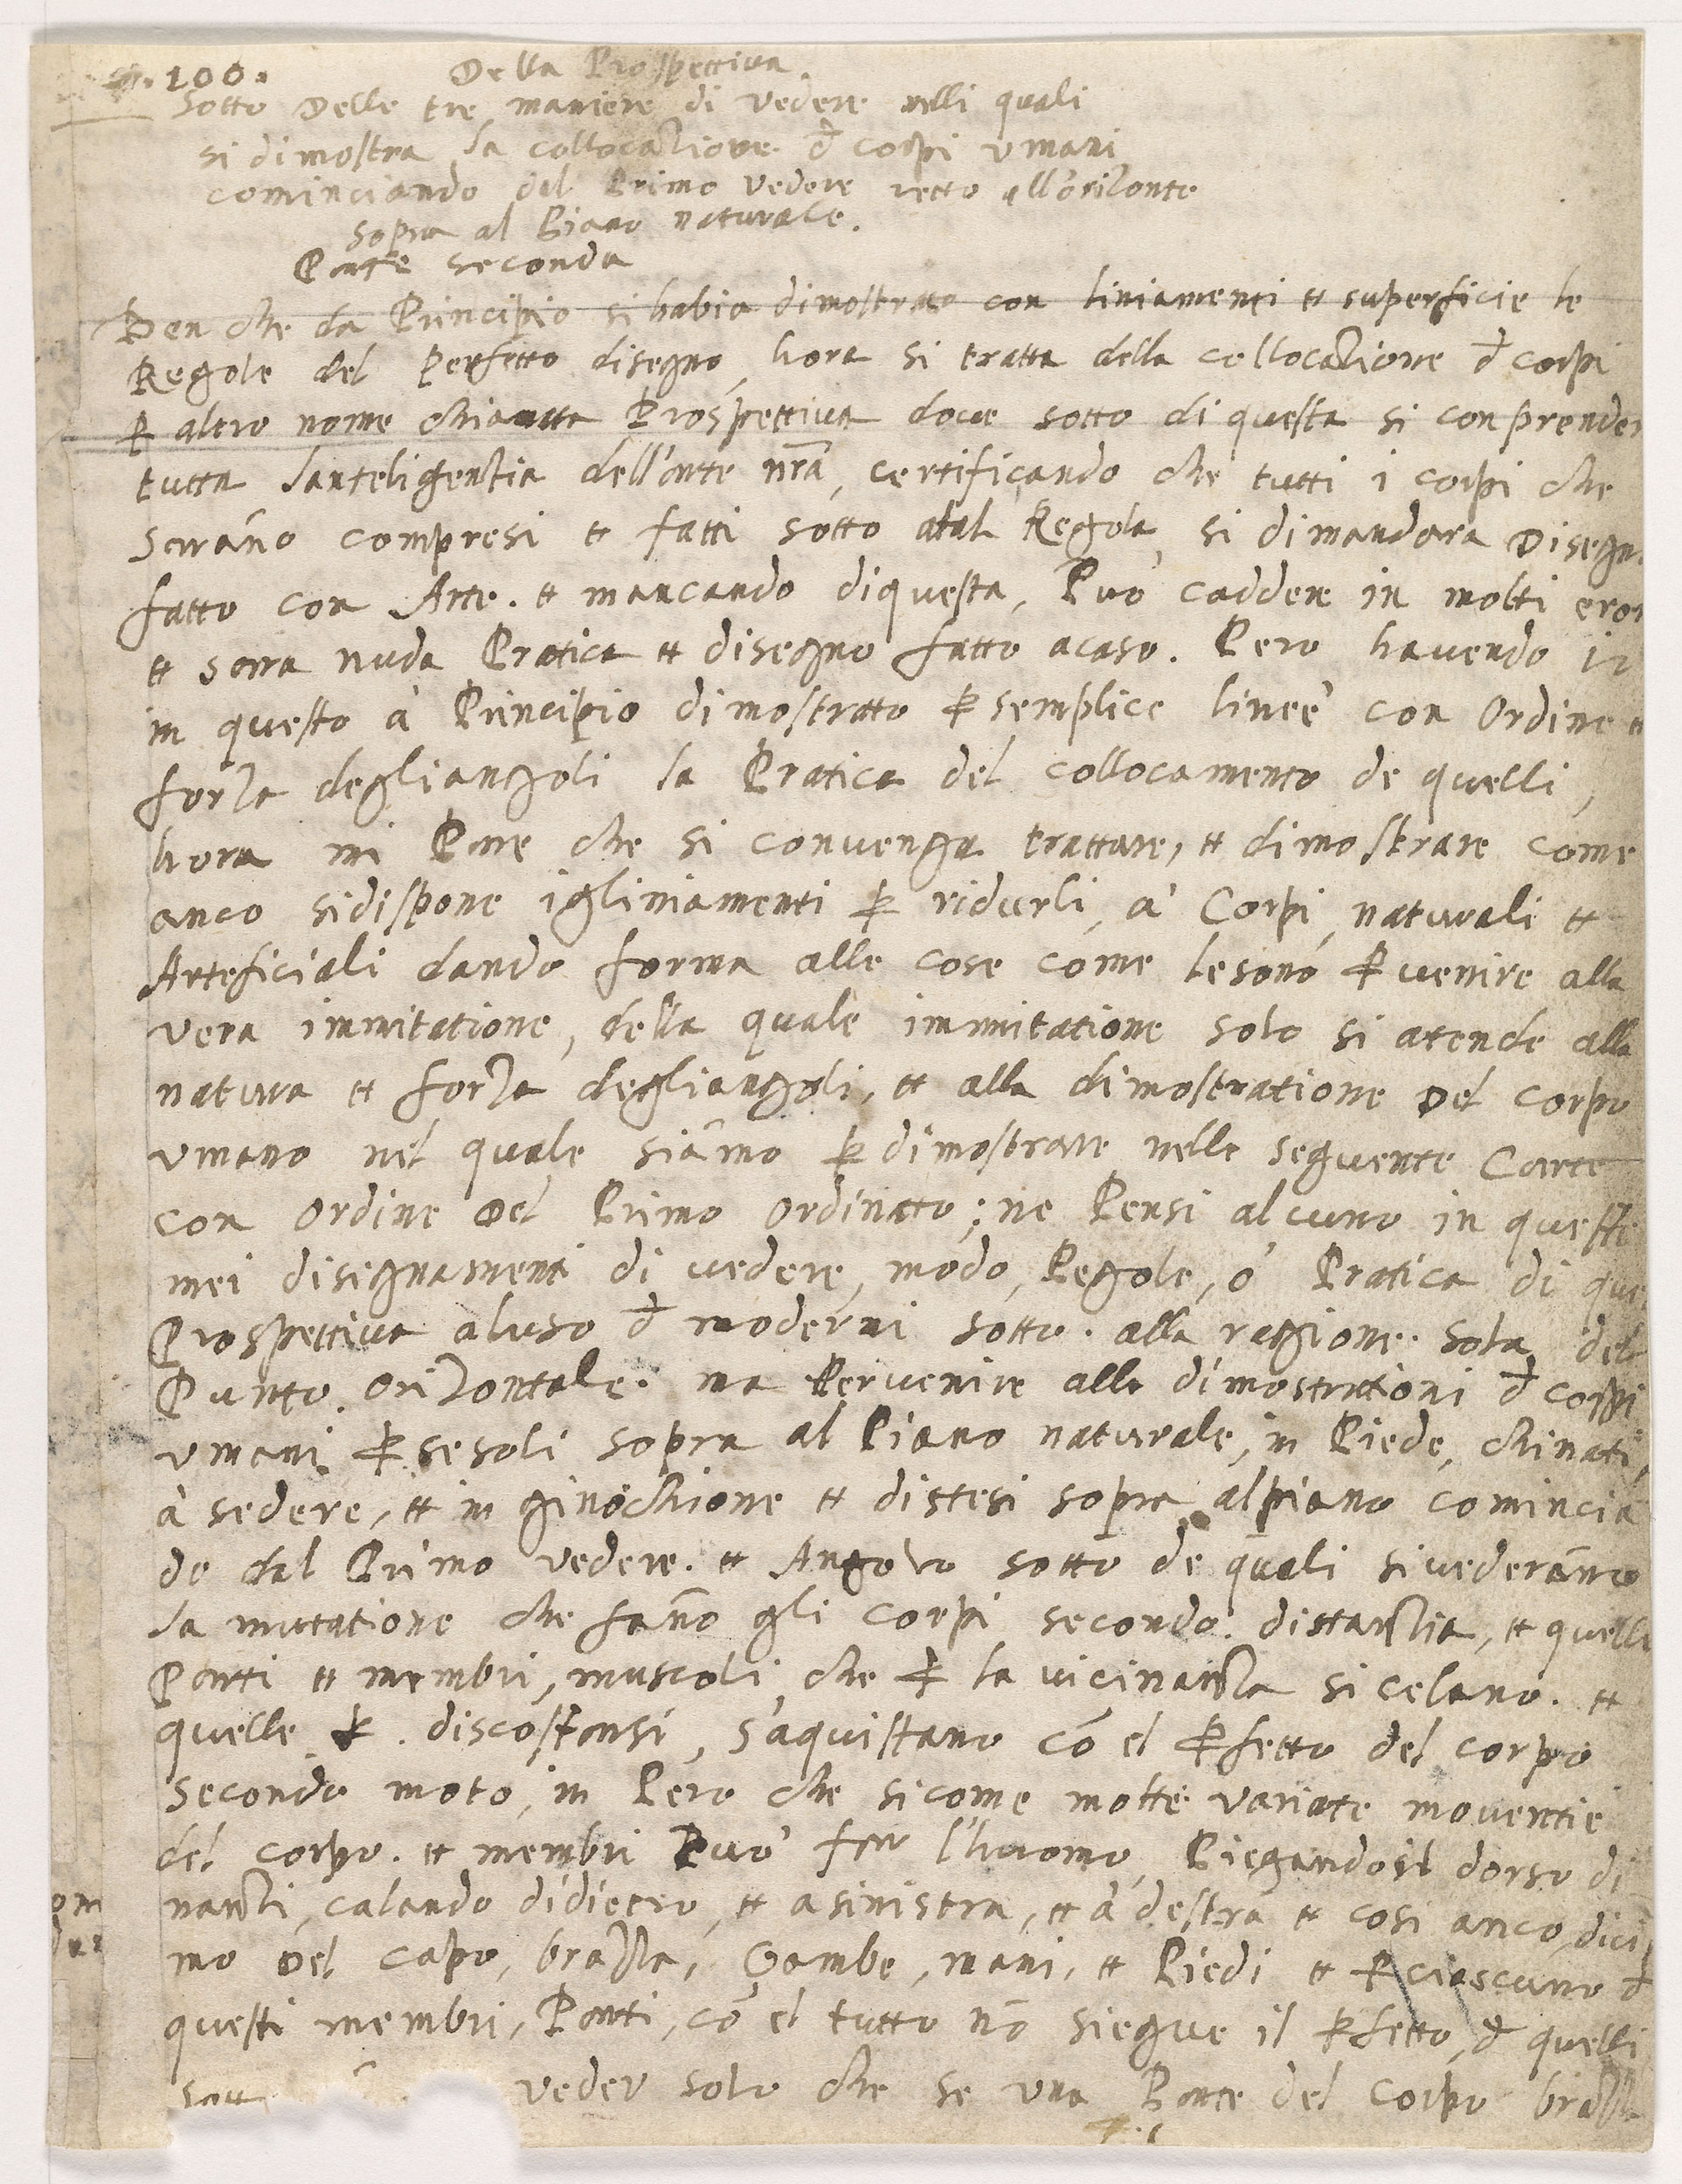 100. Della Prospettiva.
Sotto Delle tre maniere di vedere nelli quali
si dimostra la collocazione đ corpi vmani
cominciando dal Primo vedere retto all'orizonte
sopra al Piano naturale.
Parte seconda
Ben che da Principio si habia dimostrato con liniamenti et superficie le
Regole del perfetto disegno, hora si tratta della collocazione đ corpi
ꝑ altro nome chiamata Prospettiua doue sotto di questa si conprender
tutta lanteligentia dell'arte nr̃a, certificando che tutti i corpi che
sarãno compresi et fatti sotto atal Regola, si dimandara Disegn
fatto con Arte. et mancando diquesta, Puo caddere in molti eror
et sarra nuda Pratica et disegno fatto acaso. Pero havendo io
in questo à Principio dimostrato ꝑ semplice lineè con Ordine et
forza degliangoli la Pratica del collocamento de quelli,
hora mi Pare che si convenga trattare, et dimostrare come
anco sidispone igliniamenti ꝑ ridurli, à Corpi, naturali et
Arteficiali dando forma alle cose come lesono ꝑ uenire alla
vera immitatione, della quale immitatione solo si atende alla
natura et forza degliangoli, et alla dimostratione Del corpo
vmano nel quale siãmo ꝑ dimostrare nelle seguente Carte
con Ordine Del Primo Ordinatto; ne Pensi alcuno in queste
mei disegnamenti di uedere, modo, Regole, ó Pratica di que
Prospettiua aluso đ moderni sotto. alla ragione. sola del
Punto. orizontale. ma Peruenire alle dimostrationi đ corpi
vmani ꝑ sesoli sopra al Piano naturale, in Piede, chinati,
à sedere, et in ginochione et distesi sopra alpiano cominciã
do dal Primo vedere. et Angolo sotto de quali siuederãnno
la muttatione che fãno gli corpi secondo. distanzia, et quelle
Parti et membri, muscoli, che ꝑ la vicinanza sicelano. et
quelle ꝑ. discostarsi, s'aquistano cõ el ꝑfetto del corpo
secondo moto, in Pero che sicome molte variate mouentie
del corpo. et membri Può far l'huomo, Piegandosi dorso di
nanzi, calando didietro, et asinistra, et à destra et cosi anco, dicia
mo Del capo, brazza, Gambe, mani, et Piedi et ꝑ ciascuno đ
questi membri, Parti, cõ el tutto nõ siegue il ꝑfetto, đ quelli
sott veder solo che se vna Parte del corpo brazz